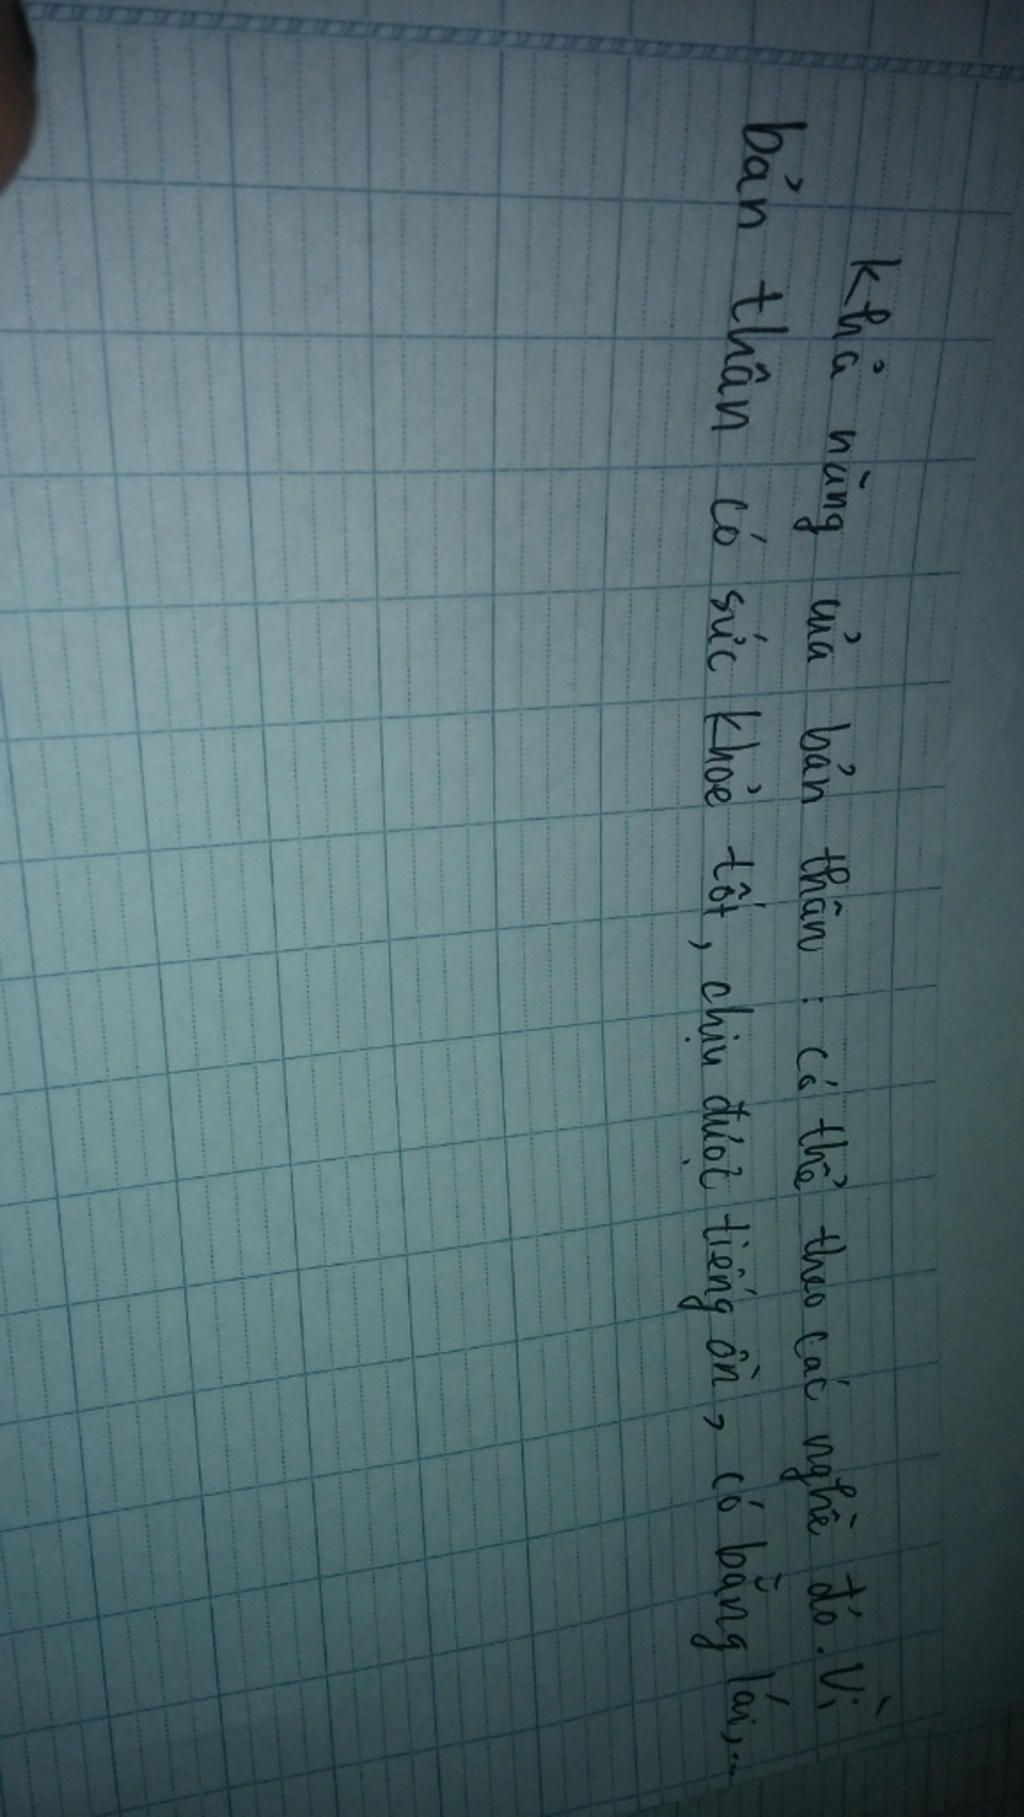 Khả năng của bản thân : có thể theo các nghề đó. Vì
bản thân có sức khỏe tốt, chịu được tiếng ồn, có bằng lái,...